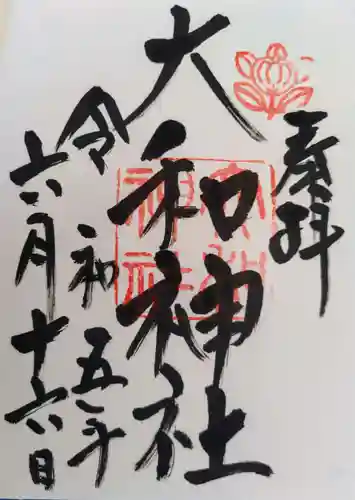 奉拝
大和神社
令和五年
六月十六日
大和神社